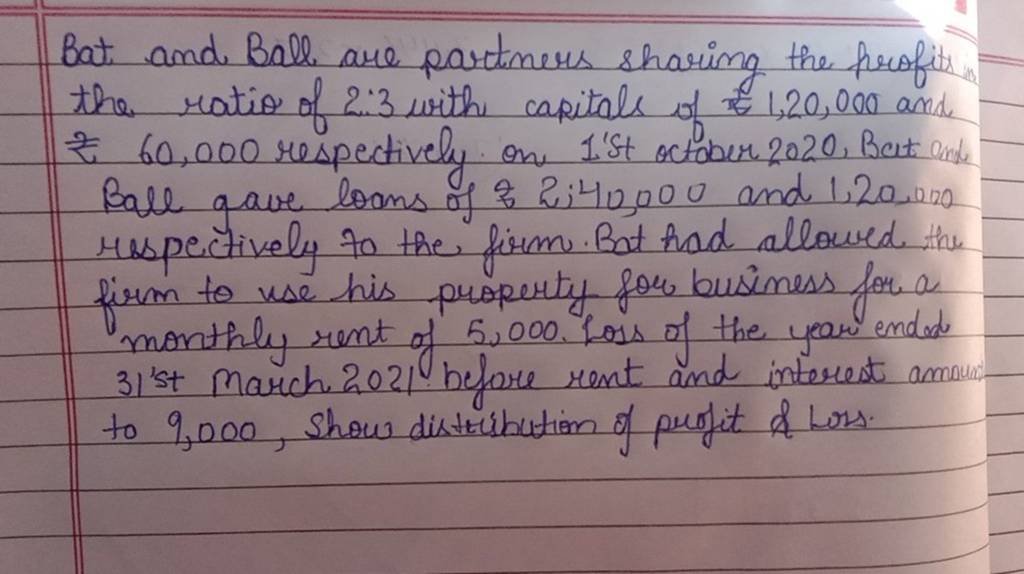 Bat and Ball are partners sharing the profits in
the ratio of 2:3 with capitals of ₹ 1,20,000 and
₹ 60,000 respectively. on 1'st october 2020, Bat and
Ball gave loans of ₹ 2,40,000 and 1,20,000
respectively to the firm. Bat had allowed the
firm to use his property for business for a
monthly rent of 5,000. Loss of the year ended
31'st March 2021 before rent and interest amount
to 9,000, Show distribution of profit & Loss.